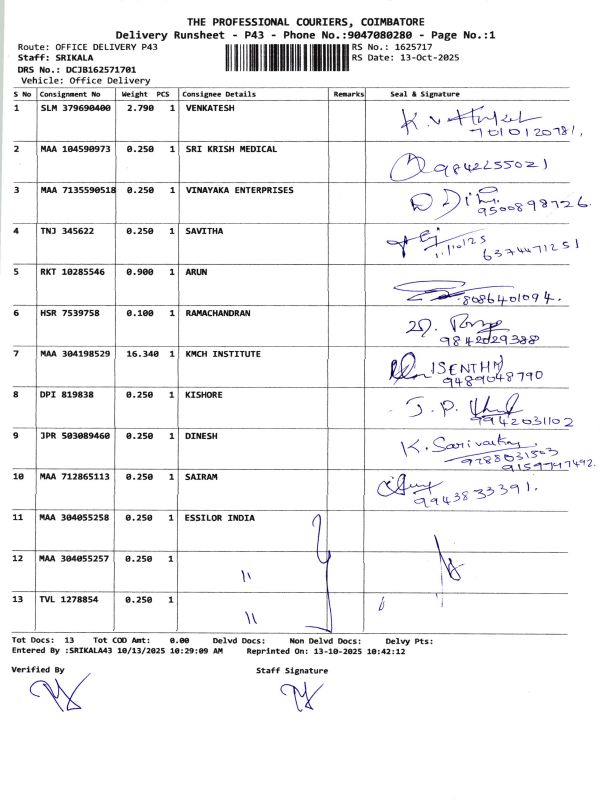 THE PROFESSIONAL COURIERS, COIMBATORE
Delivery Runsheet - P43 - Phone No.:9047080280 - Page No.:1
Route: OFFICE DELIVERY P43 RS No.: 1625717
Staff: SRIKALA RS Date: 13-Oct-2025
DRS No.: DCJB162571701
Vehicle: Office Delivery
S No Consignment No Weight PCS Consignee Details Remarks Seal & Signature
1 SLM 379690400 2.790 1 VENKATESH
7010120781.
2 MAA 104590973 0.250 1 SRI KRISH MEDICAL
9842255021
3 MAA 7135590518 0.250 1 VINAYAKA ENTERPRISES
9500898726.
4 TNJ 345622 0.250 1 SAVITHA
6374471251
5 RKT 10285546 0.900 1 ARUN
8086401094.
6 HSR 7539758 0.100 1 RAMACHANDRAN
9842029388
7 MAA 304198529 16.340 1 KMCH INSTITUTE
9489048790
8 DPI 819838 0.250 1 KISHORE
J. P.
9942031102
9 JPR 503089460 0.250 1 DINESH
K.
9788031503
10 MAA 712865113 0.250 1 SAIRAM
9943833391.
11 MAA 304055258 0.250 1 ESSILOR INDIA
12 MAA 304055257 0.250 1 "
13 TVL 1278854 0.250 1 "
Tot Docs: 13 Tot COD Amt: 0.00 Delvd Docs: Non Delvd Docs: Delvy Pts:
Entered By :SRIKALA43 10/13/2025 10:29:09 AM Reprinted On: 13-10-2025 10:42:12
Verified By Staff Signature